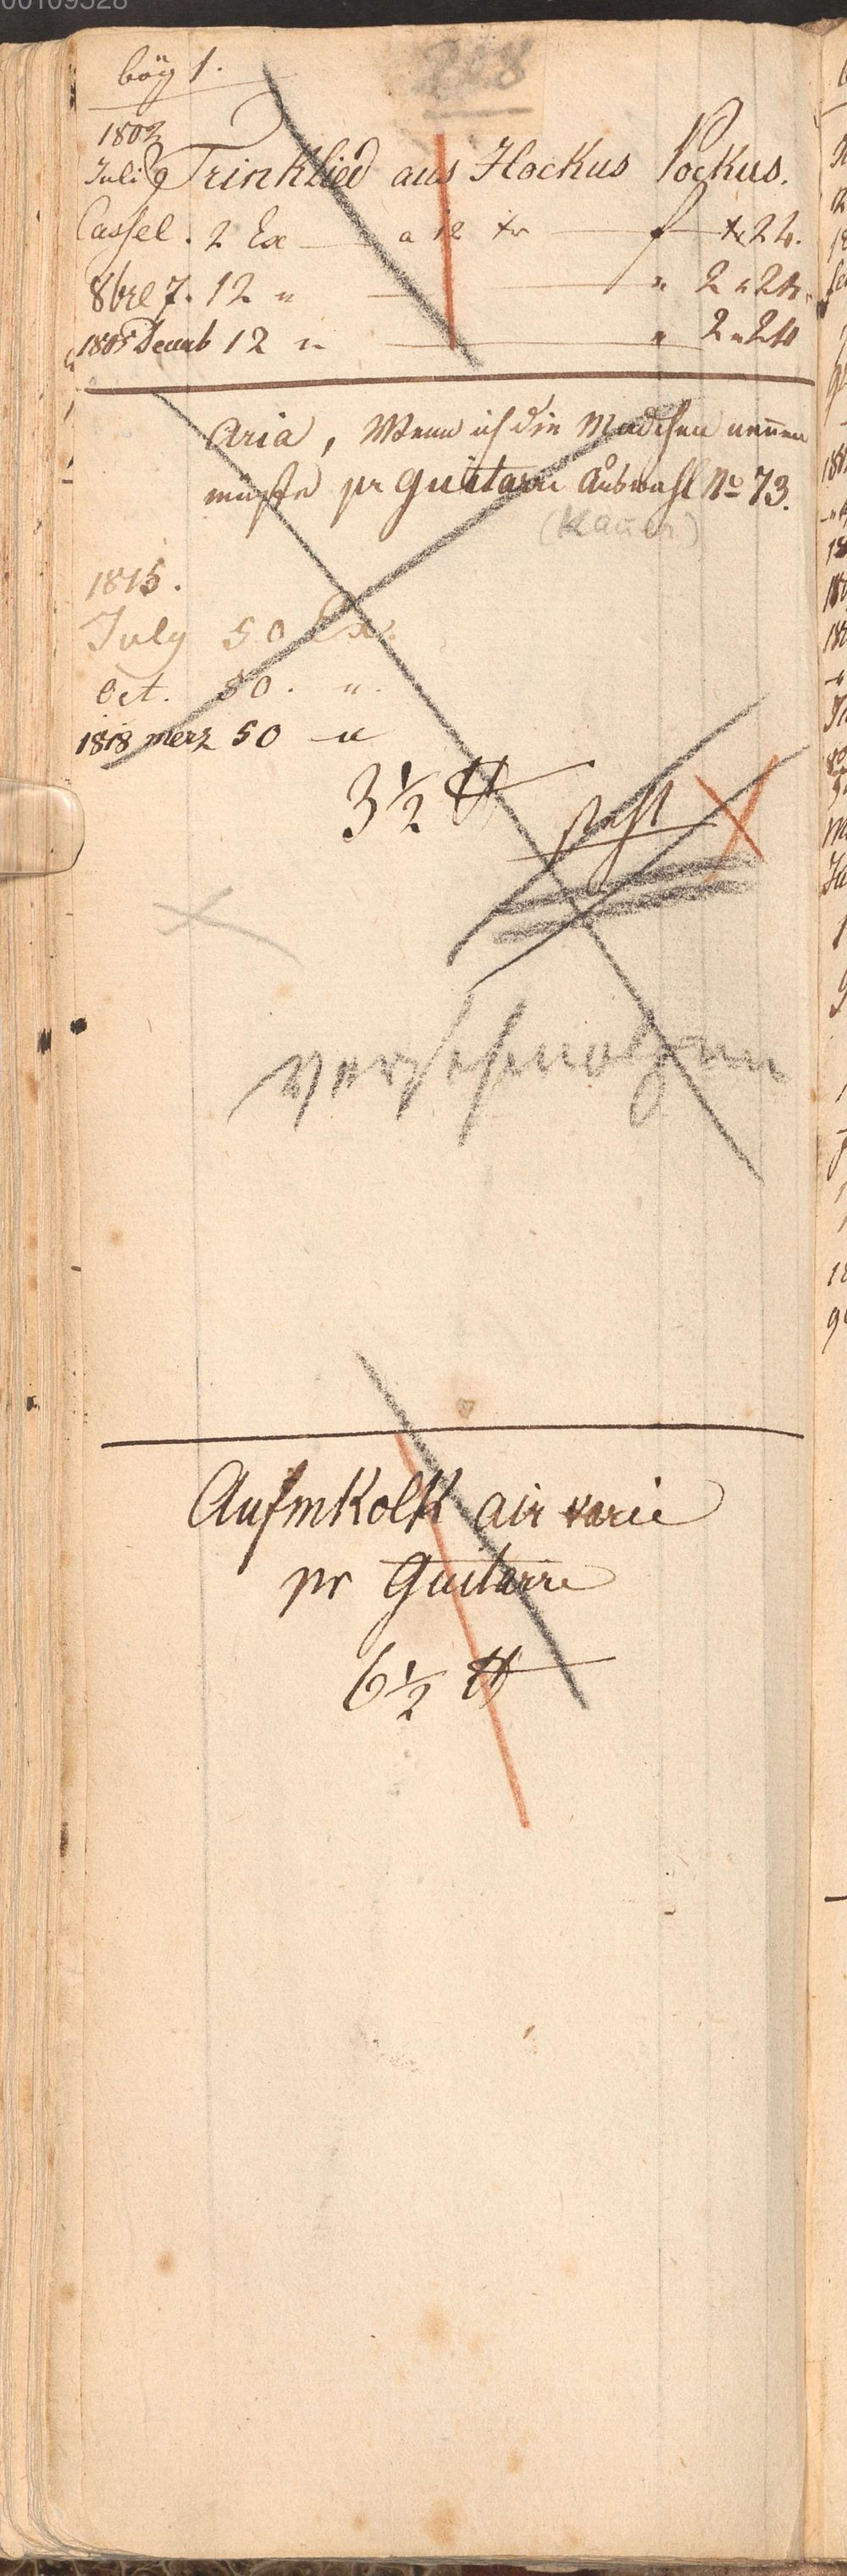 00109528
228
bög 1.
1802
Juli 9 Trinklied aus Hockus Pockus.
Cassel. 2 Ex — a 12 xr — f — x 24.
8bre 7. 12 " — " 2 " 24.
1805 Decemb 12 " — " 2 " 24
Aria, Wenn ich die Mädchen nennen
müßte pr Guitarre Auswahl No 73.
(Kauer)
1815.
July 50 Ex.
Oct. 50. ".
1818 merz 50 "
3 1/2 ℔
steht
verschmolzen
Aufmkolk air varie
pr Guitarre
6 1/2 ℔